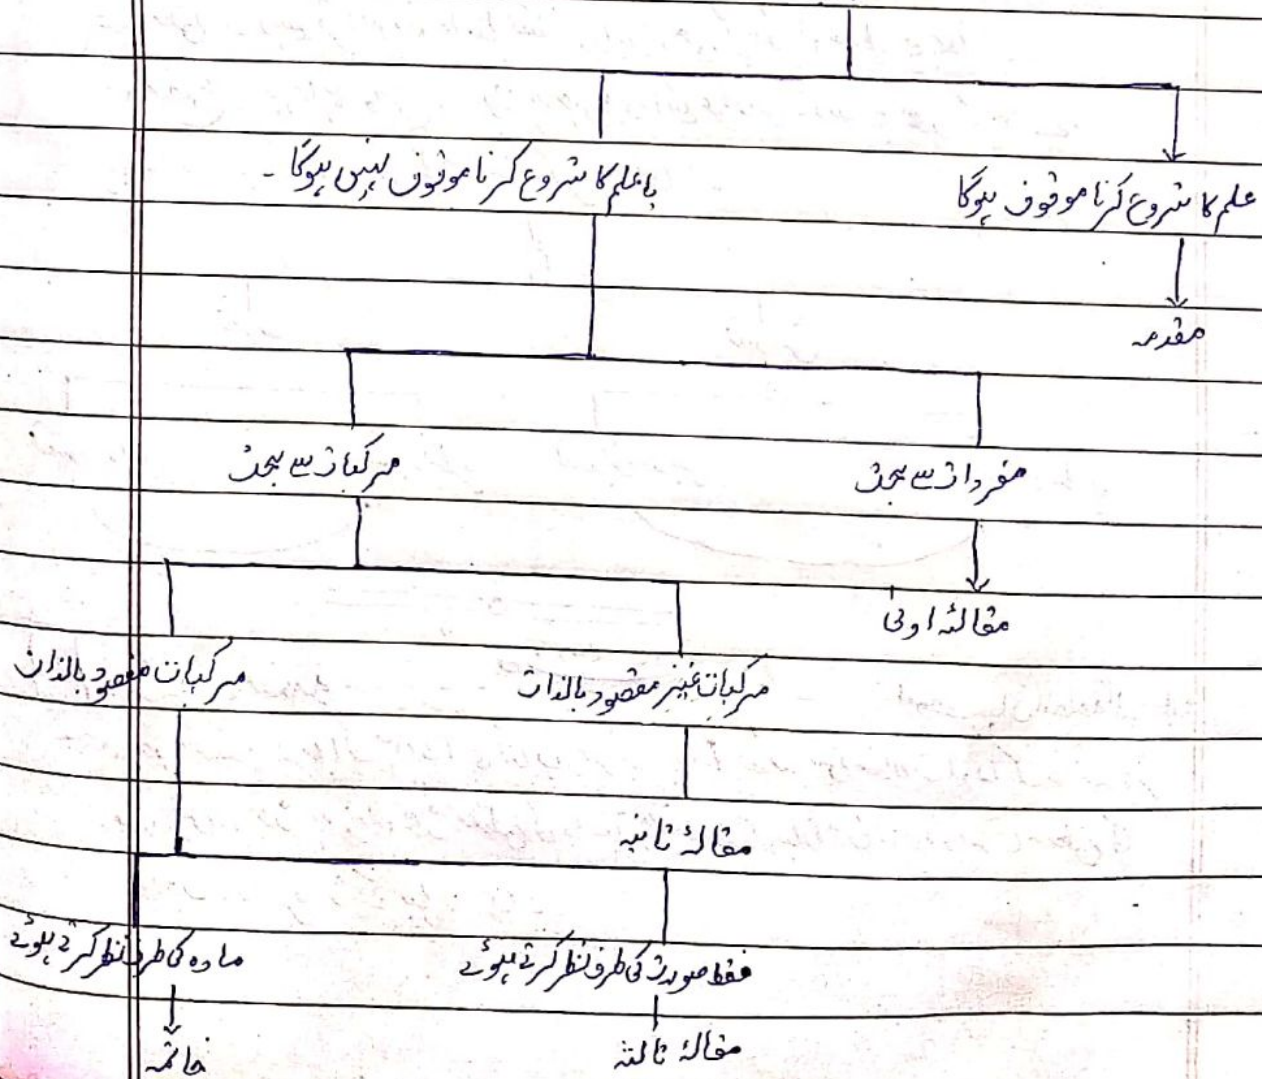 علم کا شروع کرنا موقوف ہوگا
یا علم کا شروع کرنا موقوف نہیں ہوگا ۔
مقدمہ
مفردات سے بحث
مرکبات سے بحث
مقالۂ اولیٰ
مرکبات غیر مقصود بالذات
مرکبات مقصود بالذات
مقالۂ ثانیہ
فقط صورت کی طرف نظر کرتے ہوئے
مادہ کی طرف نظر کرتے ہوئے
مقالۂ ثالثہ
خاتمہ